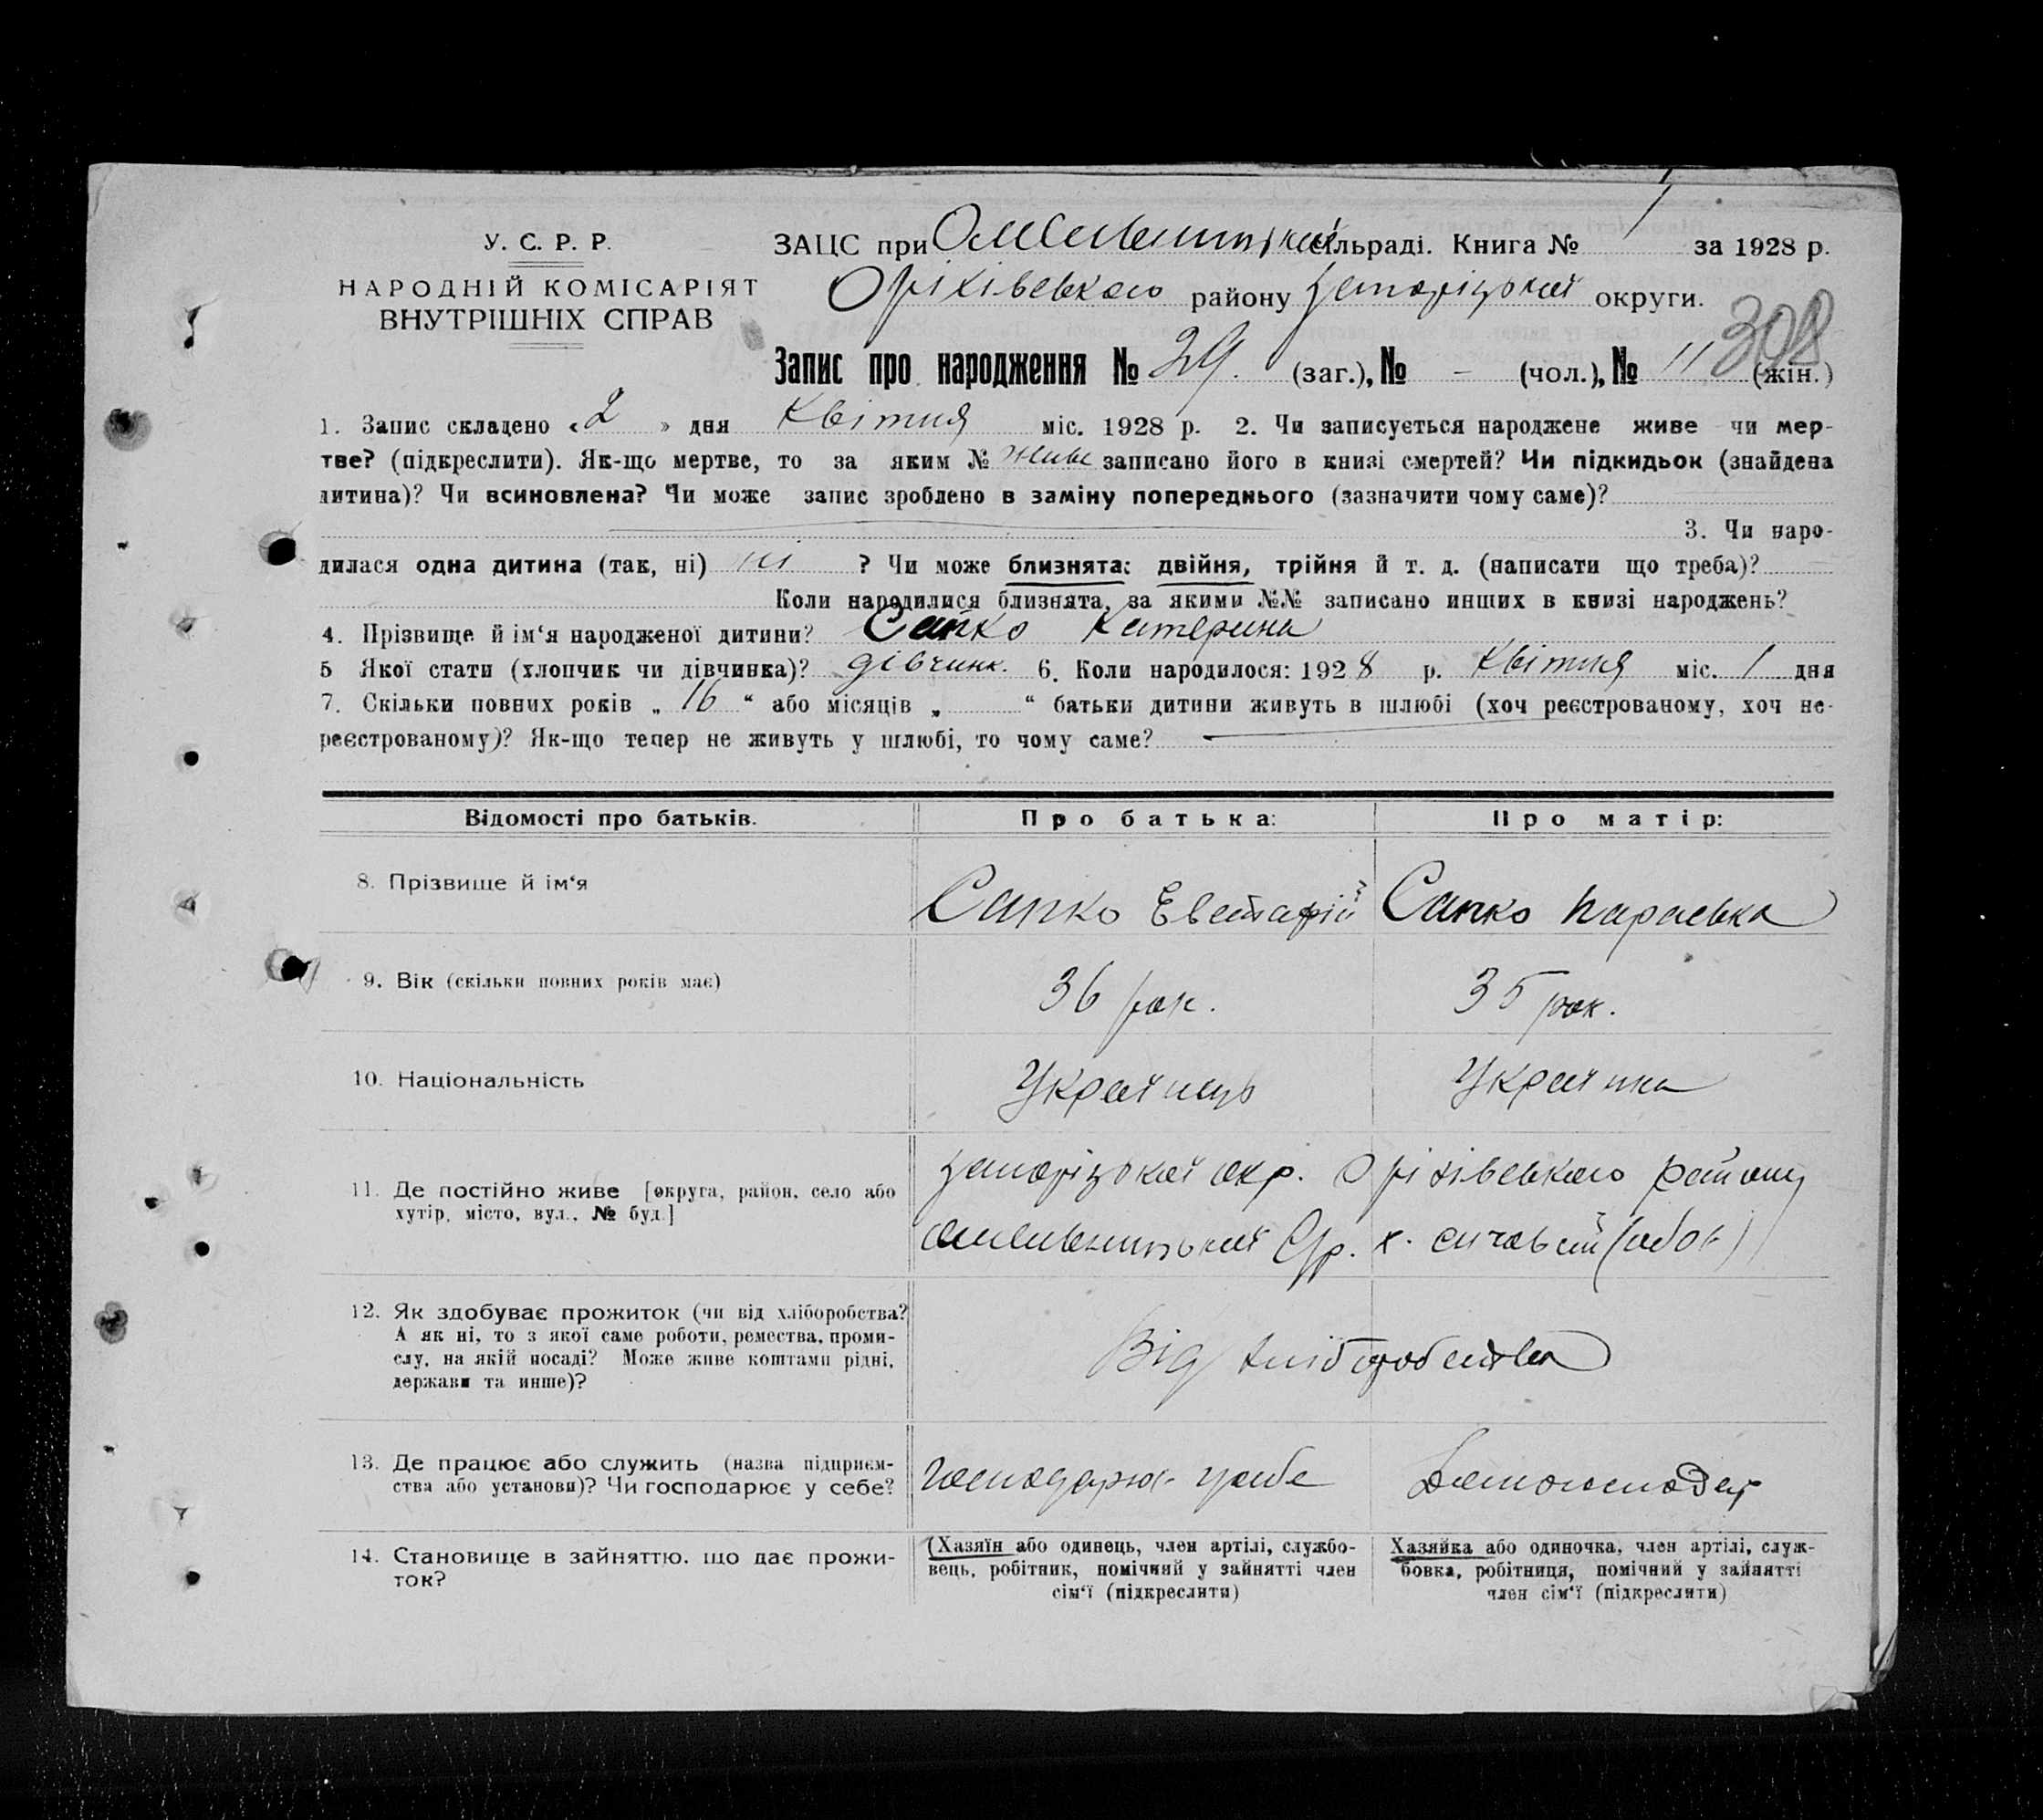 У. С. Р. Р.
НАРОДНІЙ КОМІСАРІЯТ
ВНУТРІШНІХ СПРАВ
ЗАЦС при Омельницькій сільраді. Книга № 1 за 1928 р.
Оріхівського району Запоріцької округи.
308
Запис про народження № 29. (заг.), № - (чол.), № 11 (жін.)
1. Запис складено «2» дня Квітня міс. 1928 р. 2. Чи записується народжене живе чи мер-
тве? (підкреслити). Як-що мертве, то за яким № живе записано його в книзі смертей? Чи підкидьок (знайдена
дитина)? Чи всиновлена? Чи може запис зроблено в заміну попереднього (зазначити чому саме)?
3. Чи наро-
дилася одна дитина (так, ні) ні ? Чи може близнята: двійня, трійня й т. д. (написати що треба)?
Коли народилися близнята, за якими №№ записано инших в книзі народжень?
4. Прізвище й ім‘я народженої дитини? Сапко Катерина
5 Якої стати (хлопчик чи дівчинка)? дівчинк. 6. Коли народилося: 1928 р. Квітня міс. 1 дня
7. Скільки повних років „ 16 “ або місяців „ “ батьки дитини живуть в шлюбі (хоч реєстрованому, хоч не-
реєстрованому)? Як-що тепер не живуть у шлюбі, то чому саме?
Відомості про батьків. Про батька: Про матір:
8. Прізвище й ім‘я Сапко Сапко Параска
9. Вік (скільки повних років має) 36 рок. 35 рок.
10. Національність Українець Українка
11. Де постійно живе [округа, район, село або
хутір, місто, вул., № буд.]
Запоріцької окр. Оріхівського району
Омельницької С/р. х.
12. Як здобуває прожиток (чи від хліборобства?
А як ні, то з якої саме роботи, ремества, проми-
слу, на якій посаді? Може живе коштами рідні,
держави та инше)?
Від хліборобства
13. Де працює або служить (назва підприєм-
ства або установи)? Чи господарює у себе?
Господарює у себе
14. Становище в зайняттю, що дає прожи-
ток?
(Хазяїн або одинець, член артілі, службо-
вець, робітник, помічний у зайнятті член
сім‘ї (підкреслити)
Хазяйка або одиночка, член артілі, служ-
бовка, робітниця, помічний у зайнятті
член сім‘ї (підкреслити)